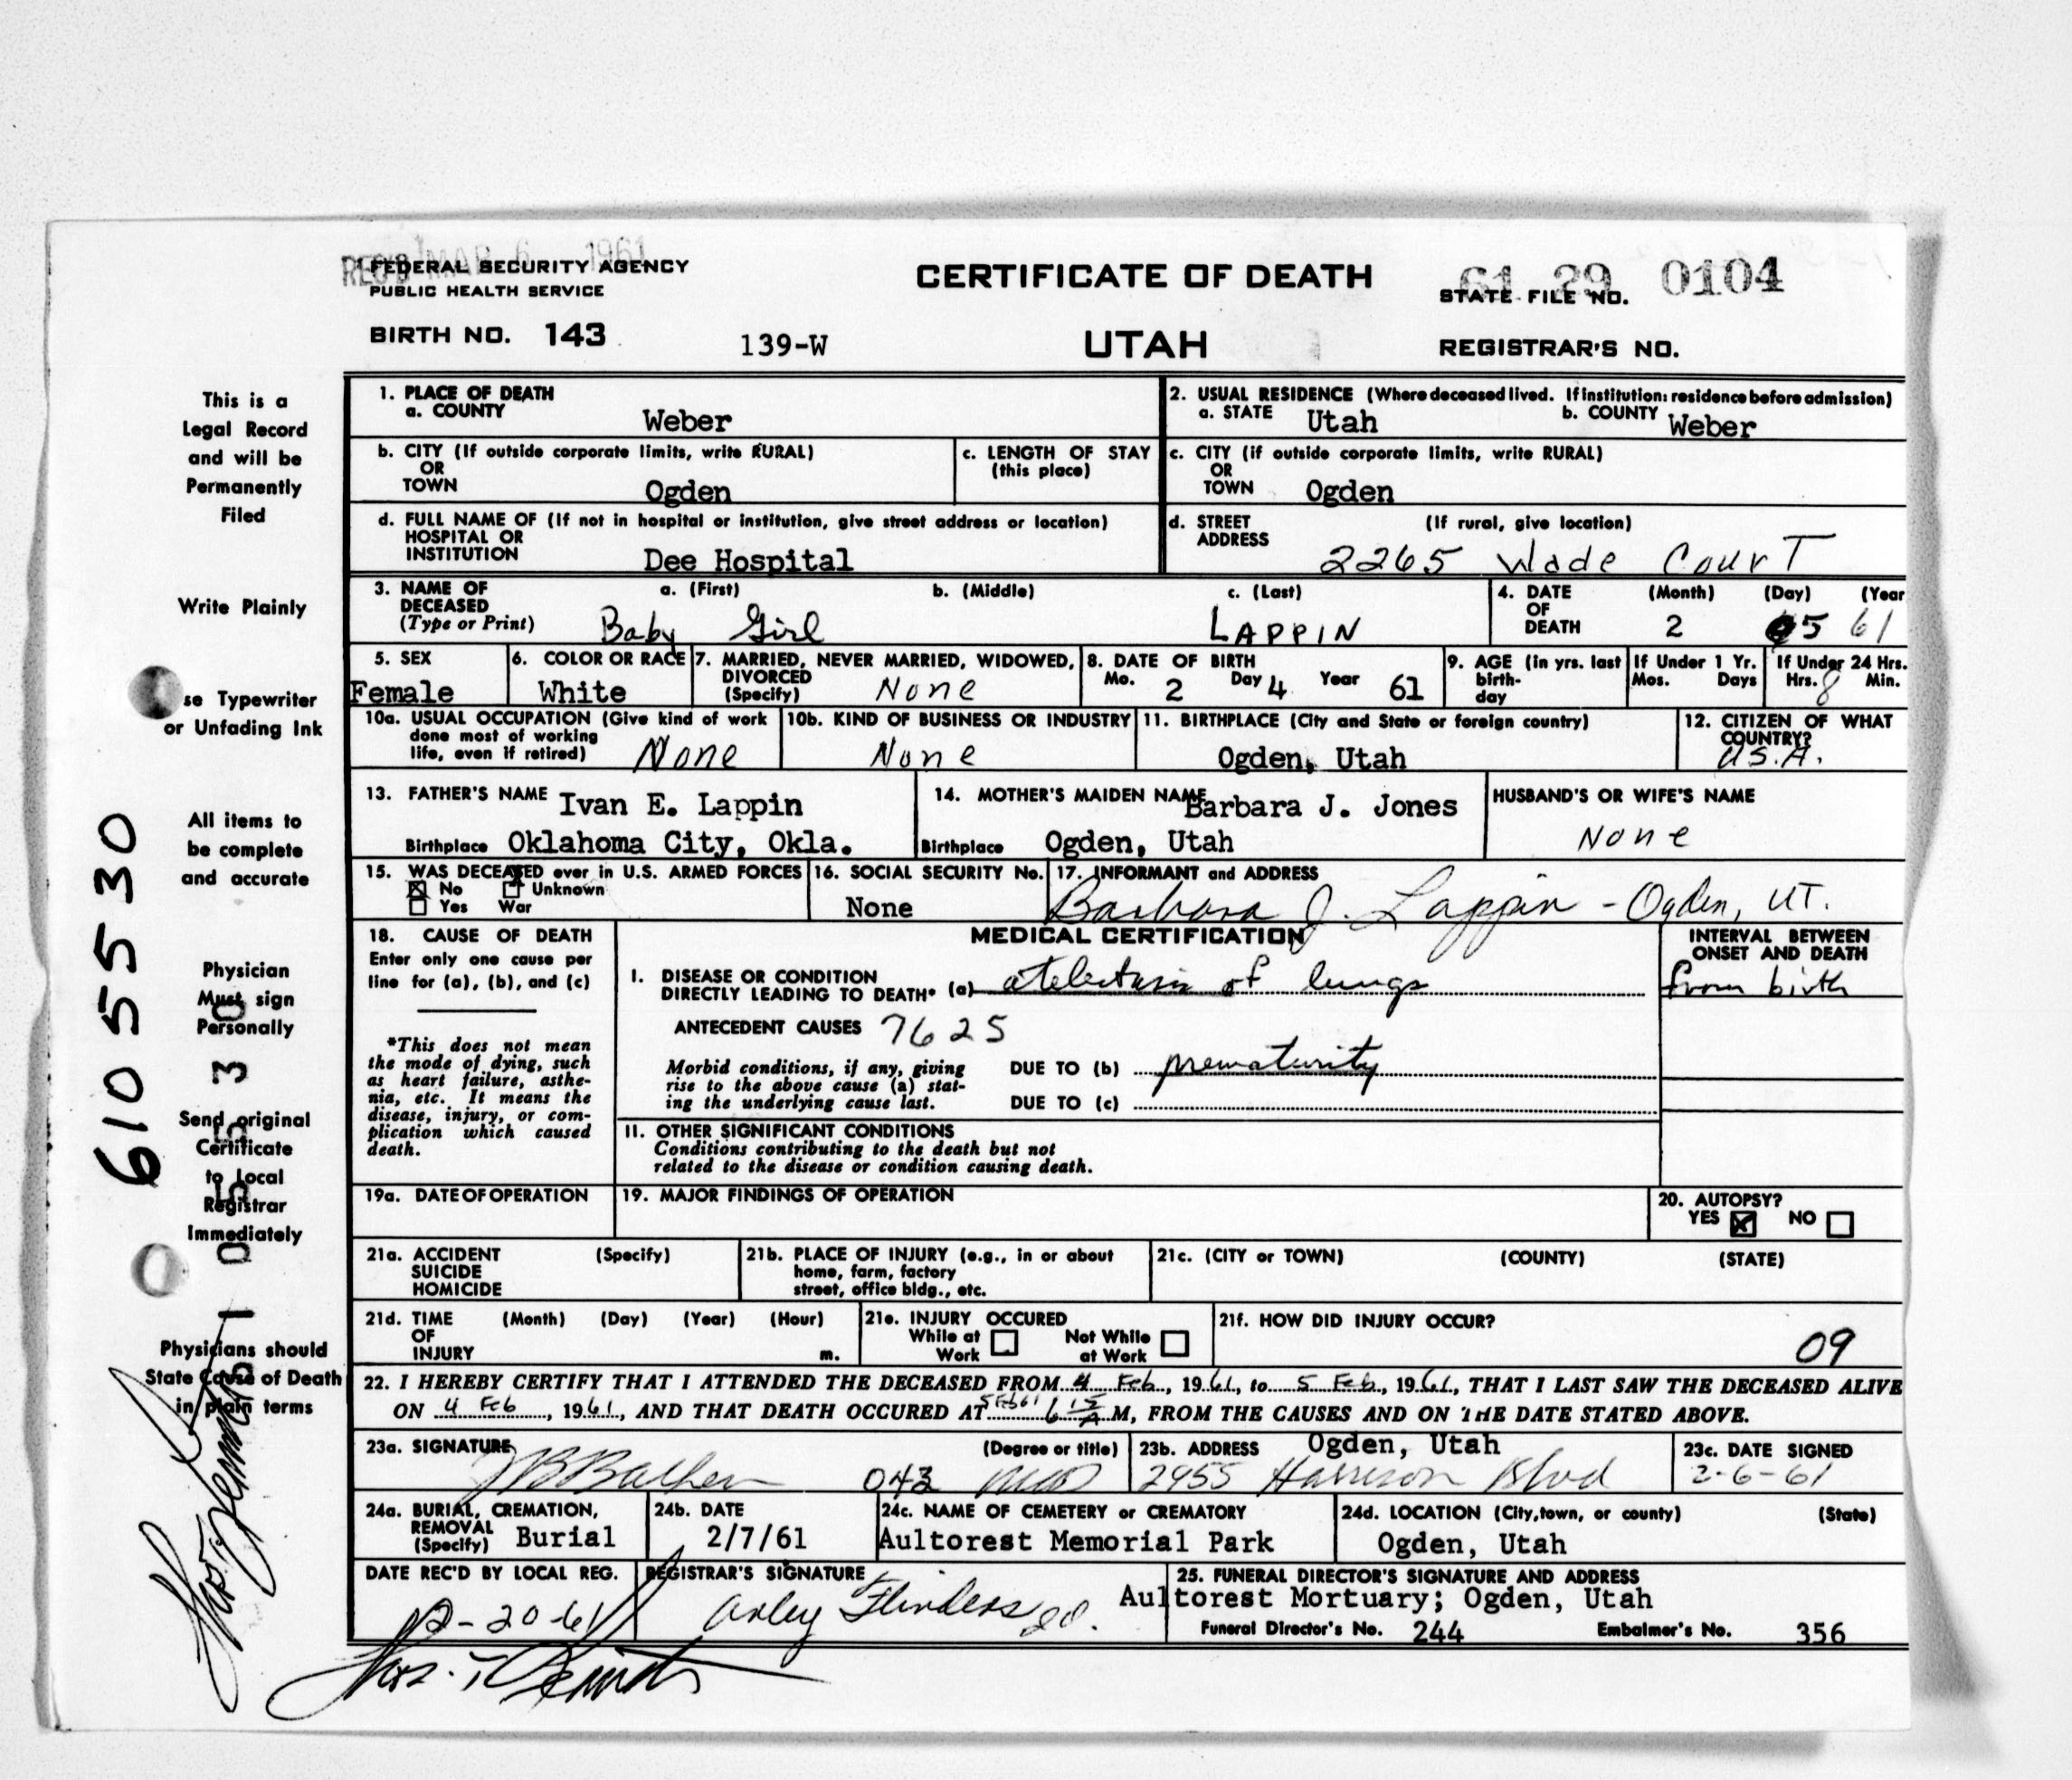 REC'D MAR 6 1961
FEDERAL SECURITY AGENCY
PUBLIC HEALTH SERVICE
CERTIFICATE OF DEATH
61 29 0104
STATE FILE NO.
BIRTH NO. 143
139-W
UTAH
REGISTRAR'S NO.
This is a
Legal Record
and will be
Permanently
Filed
Write Plainly
se Typewriter
or Unfading Ink
All items to
be complete
and accurate
Physician
Must sign
Personally
Send original
Certificate
to Local
Registrar
Immediately
Physicians should
State Cause of Death
in plain terms
6105530
1. PLACE OF DEATH
a. COUNTY Weber
2. USUAL RESIDENCE (Where deceased lived. If institution: residence before admission)
a. STATE Utah b. COUNTY Weber
b. CITY (If outside corporate limits, write RURAL)
OR
TOWN Ogden
c. LENGTH OF STAY
(this place)
c. CITY (if outside corporate limits, write RURAL)
OR
TOWN Ogden
d. FULL NAME OF (If not in hospital or institution, give street address or location)
HOSPITAL OR
INSTITUTION Dee Hospital
d. STREET (If rural, give location)
ADDRESS 2265 Wade Court
3. NAME OF DECEASED (Type or Print)
a. (First) b. (Middle) c. (Last)
Baby Girl LAPPIN
4. DATE OF DEATH (Month) (Day) (Year
2 5 61
5. SEX
Female
6. COLOR OR RACE
White
7. MARRIED, NEVER MARRIED, WIDOWED,
DIVORCED
(Specify) None
8. DATE OF BIRTH
Mo. 2 Day 4 Year 61
9. AGE (in yrs. last
birth-
day
If Under 1 Yr.
Mos. Days
If Under 24 Hrs.
Hrs. 8 Min.
10a. USUAL OCCUPATION (Give kind of work
done most of working
life, even if retired) None
10b. KIND OF BUSINESS OR INDUSTRY
None
11. BIRTHPLACE (City and State or foreign country)
Ogden, Utah
12. CITIZEN OF WHAT
COUNTRY?
U.S.A.
13. FATHER'S NAME Ivan E. Lappin
Birthplace Oklahoma City, Okla.
14. MOTHER'S MAIDEN NAME Barbara J. Jones
Birthplace Ogden, Utah
HUSBAND'S OR WIFE'S NAME
None
15. WAS DECEASED ever in U.S. ARMED FORCES
No Unknown
Yes War
16. SOCIAL SECURITY No.
None
17. INFORMANT and ADDRESS
Barbara J. Lappin - Ogden, UT.
18. CAUSE OF DEATH
Enter only one cause per
line for (a), (b), and (c)
*This does not mean
the mode of dying, such
as heart failure, asthe-
nia, etc. It means the
disease, injury, or com-
plication which caused
death.
MEDICAL CERTIFICATION
INTERVAL BETWEEN
ONSET AND DEATH
I. DISEASE OR CONDITION
DIRECTLY LEADING TO DEATH* (a) atelectasis of lungs
from birth
ANTECEDENT CAUSES 7625
Morbid conditions, if any, giving
rise to the above cause (a) stat-
ing the underlying cause last.
DUE TO (b) prematurity
DUE TO (c)
11. OTHER SIGNIFICANT CONDITIONS
Conditions contributing to the death but not
related to the disease or condition causing death.
19a. DATE OF OPERATION
19. MAJOR FINDINGS OF OPERATION
20. AUTOPSY?
YES NO
21a. ACCIDENT (Specify)
SUICIDE
HOMICIDE
21b. PLACE OF INJURY (e.g., in or about
home, farm, factory
street, office bldg., etc.
21c. (CITY or TOWN) (COUNTY) (STATE)
21d. TIME (Month) (Day) (Year) (Hour)
OF
INJURY m.
21e. INJURY OCCURED
While at Work Not While at Work
21f. HOW DID INJURY OCCUR?
09
22. I HEREBY CERTIFY THAT I ATTENDED THE DECEASED FROM 4 Feb, 1961, to 5 Feb, 1961, THAT I LAST SAW THE DECEASED ALIVE
ON 4 Feb, 1961, AND THAT DEATH OCCURED AT 5 Feb 61 6 15 A M, FROM THE CAUSES AND ON THE DATE STATED ABOVE.
23a. SIGNATURE (Degree or title)
043 MD
23b. ADDRESS Ogden, Utah
2955 Harrison Blvd
23c. DATE SIGNED
2-6-61
24a. BURIAL, CREMATION,
REMOVAL
(Specify) Burial
24b. DATE
2/7/61
24c. NAME OF CEMETERY or CREMATORY
Aultorest Memorial Park
24d. LOCATION (City, town, or county) (State)
Ogden, Utah
DATE REC'D BY LOCAL REG.
2-20-61
REGISTRAR'S SIGNATURE
Arley Flinders
25. FUNERAL DIRECTOR'S SIGNATURE AND ADDRESS
Aultorest Mortuary; Ogden, Utah
Funeral Director's No. 244 Embalmer's No. 356